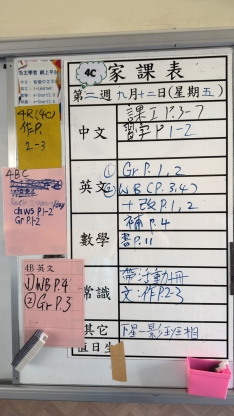 4C
家課表
第二週九月十二日(星期五)
中文
課工P.3-7
習字P.1-2
英文
①Gr P.1,2
②WB (P.3.4)
+改P.1,2
數學
補P.4
書P.11
常識
帶活動冊
文:作P.2-3
其它
值日生
4R(4C)
作P.
2-3
4BC
ch ws P1-2
Gr P.1-2
4B英文
①WB P.4
②Gr P.3